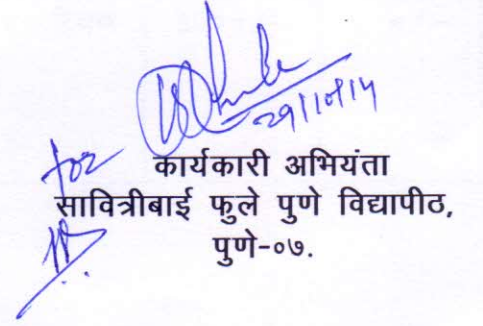 29/10/14
for
कार्यकारी अभियंता
सावित्रीबाई फुले पुणे विद्यापीठ,
पुणे-०७.